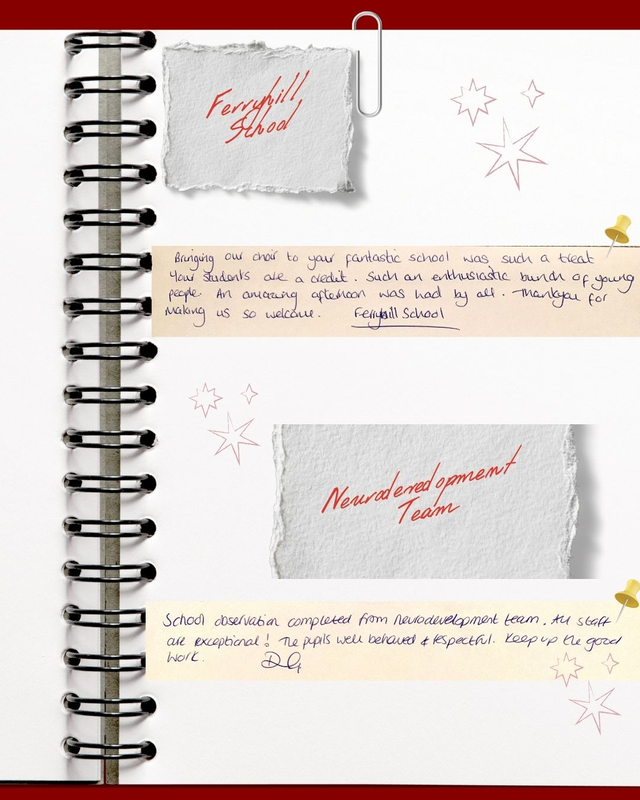 Ferryhill
School
Bringing our choir to your fantastic school was such a treat
Your students are a credit. Such an enthusiastic bunch of young
people. An amazing afternoon was had by all. Thankyou for
making us so welcome. Ferryhill School
Neurodevelopment
Team
School observation completed from neurodevelopment team. All staff
are exceptional! The pupils well behaved & respectful. Keep up the good
work. DG